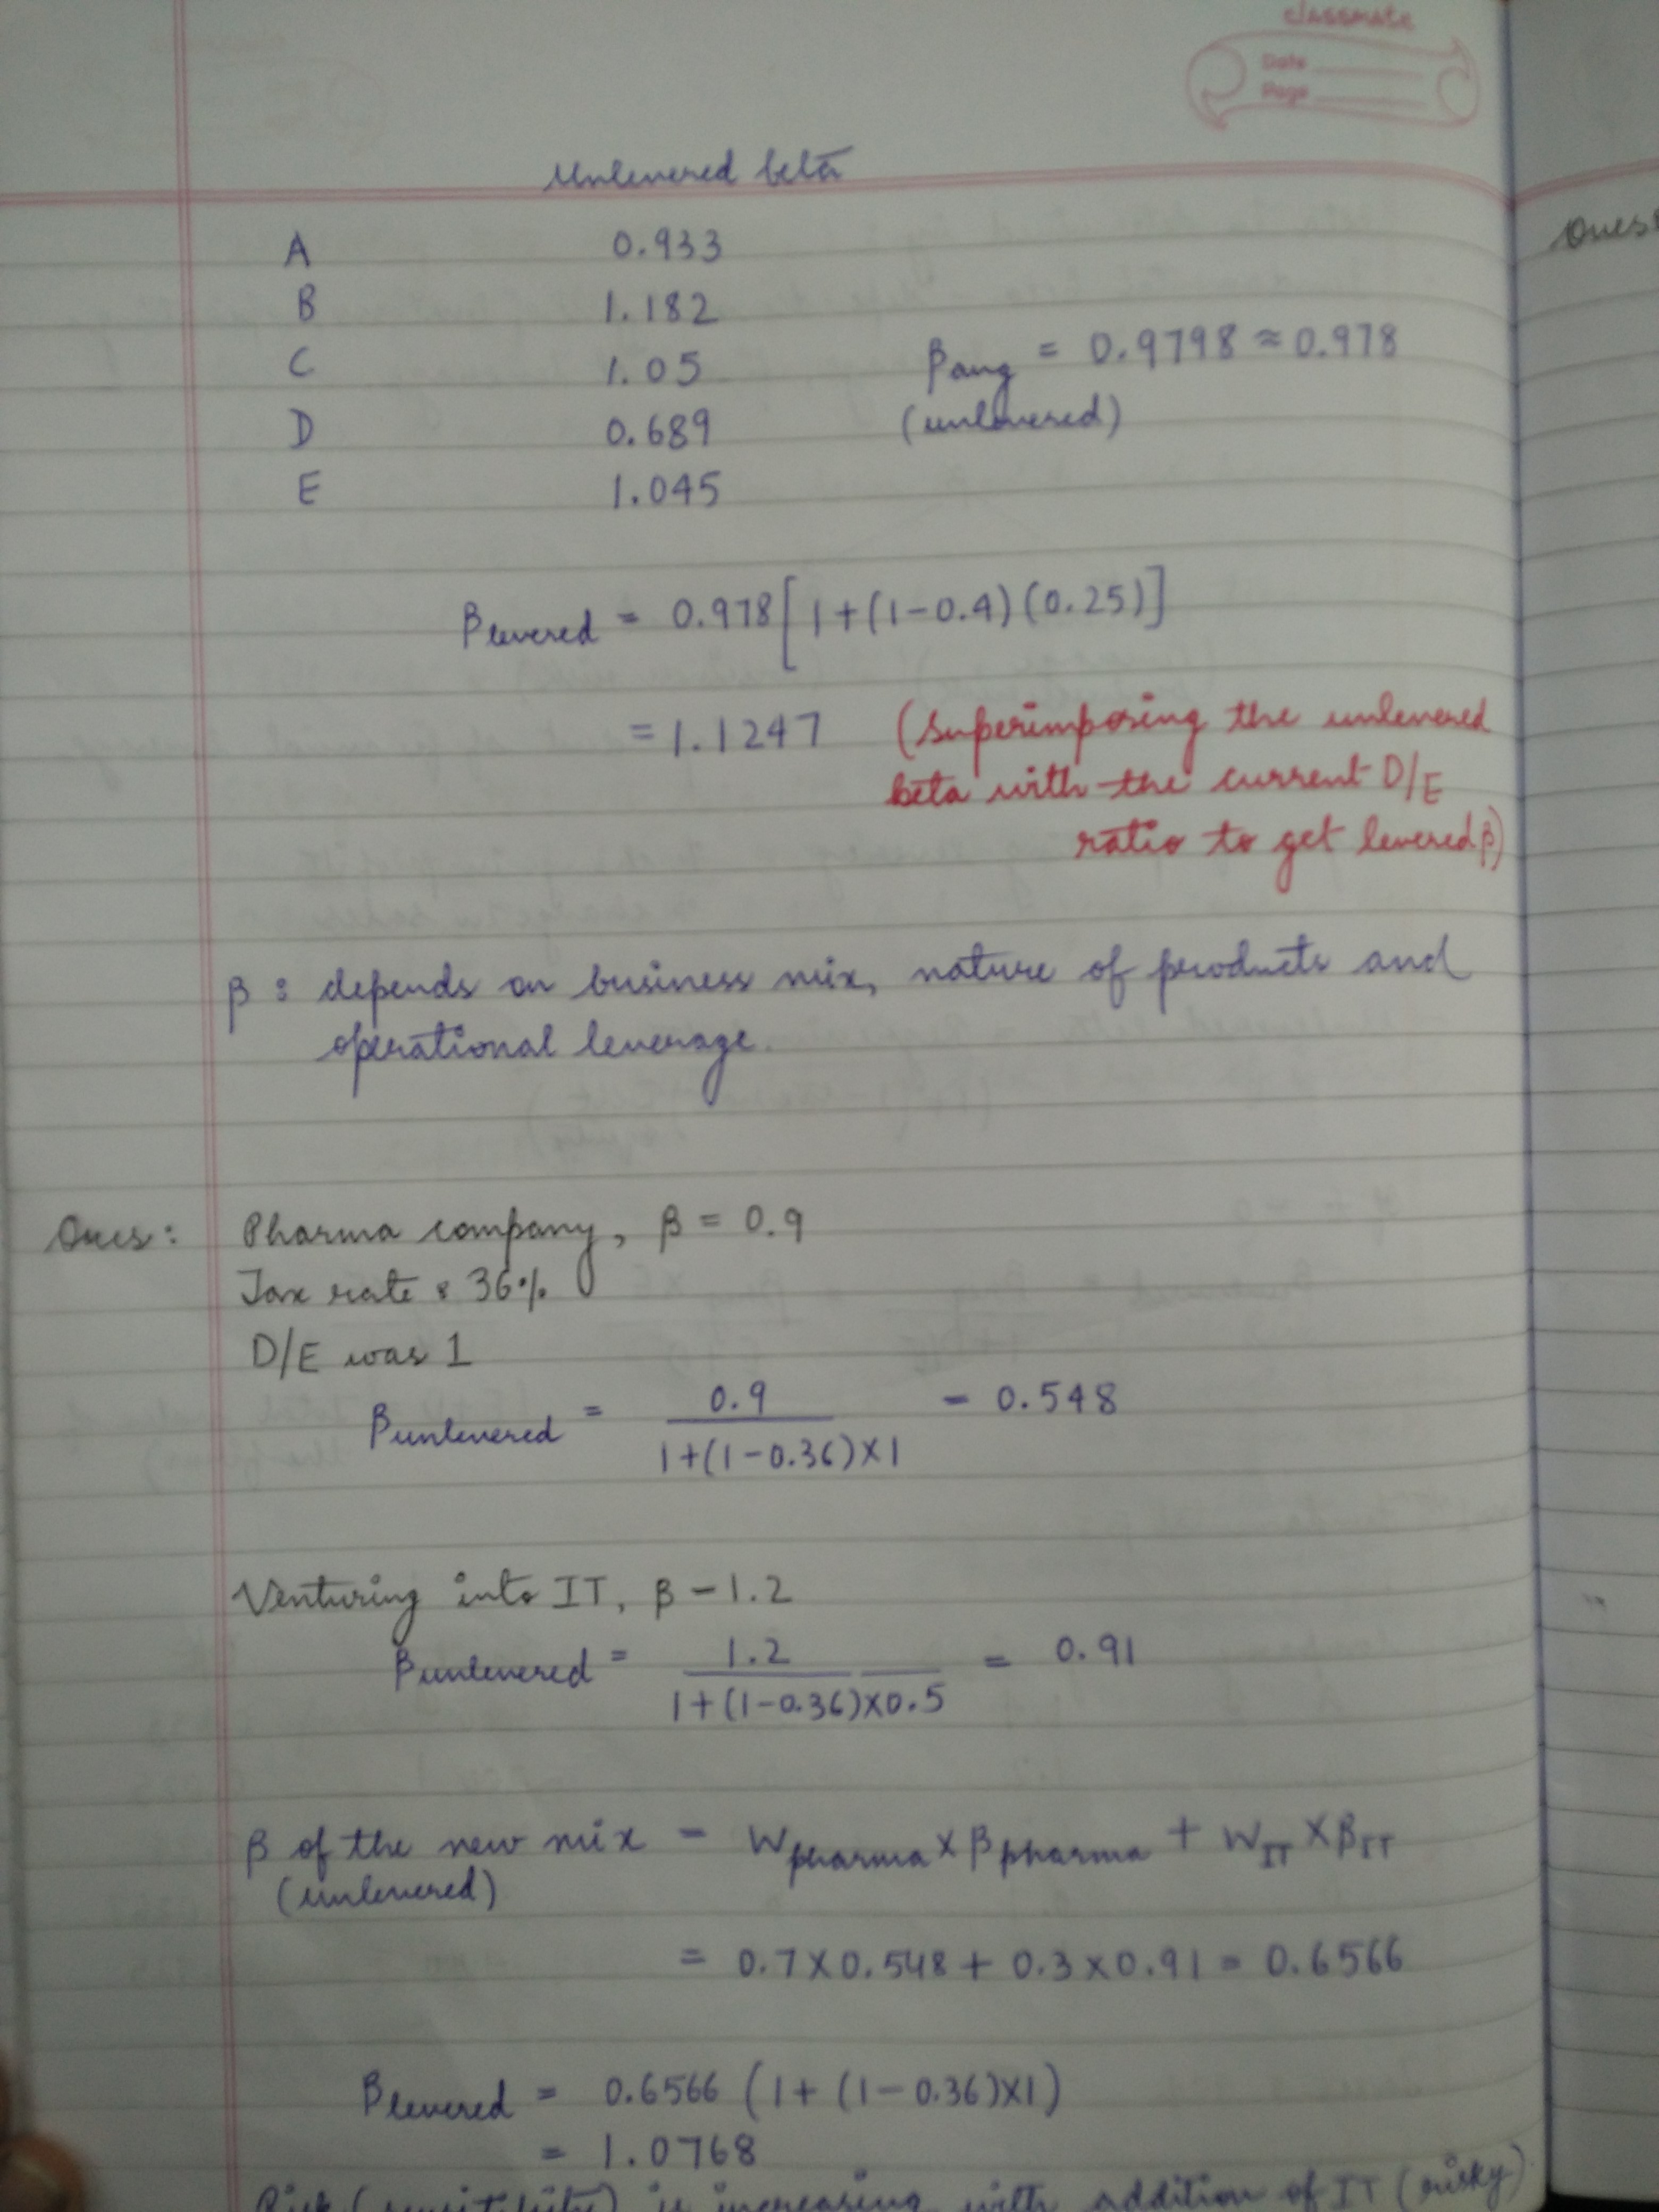 classmate
Date
Page
Unlevered beta
A 0.933
B 1.182
C 1.05 βavg = 0.9798 ≈ 0.978
D 0.689 (unlevered)
E 1.045
βlevered = 0.978[1+(1-0.4)(0.25)]
= 1.1247 (superimposing the unlevered
beta with the current D/E
ratio to get levered β)
β : depends on business mix, nature of products and
operational leverage.
Ques: Pharma company, β = 0.9
Tax rate : 36%
D/E was 1
βunlevered = 0.9 / 1+(1-0.36)×1 = 0.548
Venturing into IT, β - 1.2
βunlevered = 1.2 / 1+(1-0.36)×0.5 = 0.91
β of the new mix = Wpharma × βpharma + WIT × βIT
(unlevered)
= 0.7×0.548 + 0.3×0.91 = 0.6566
βlevered = 0.6566 (1+ (1-0.36)×1)
= 1.0768
Risk (sensitivity) is increasing with addition of IT (risky)
Ques